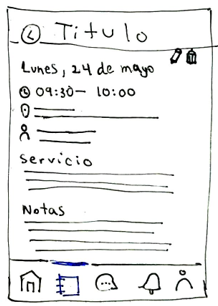 Titulo
Lunes, 24 de mayo
09:30 - 10:00
Servicio
Notas